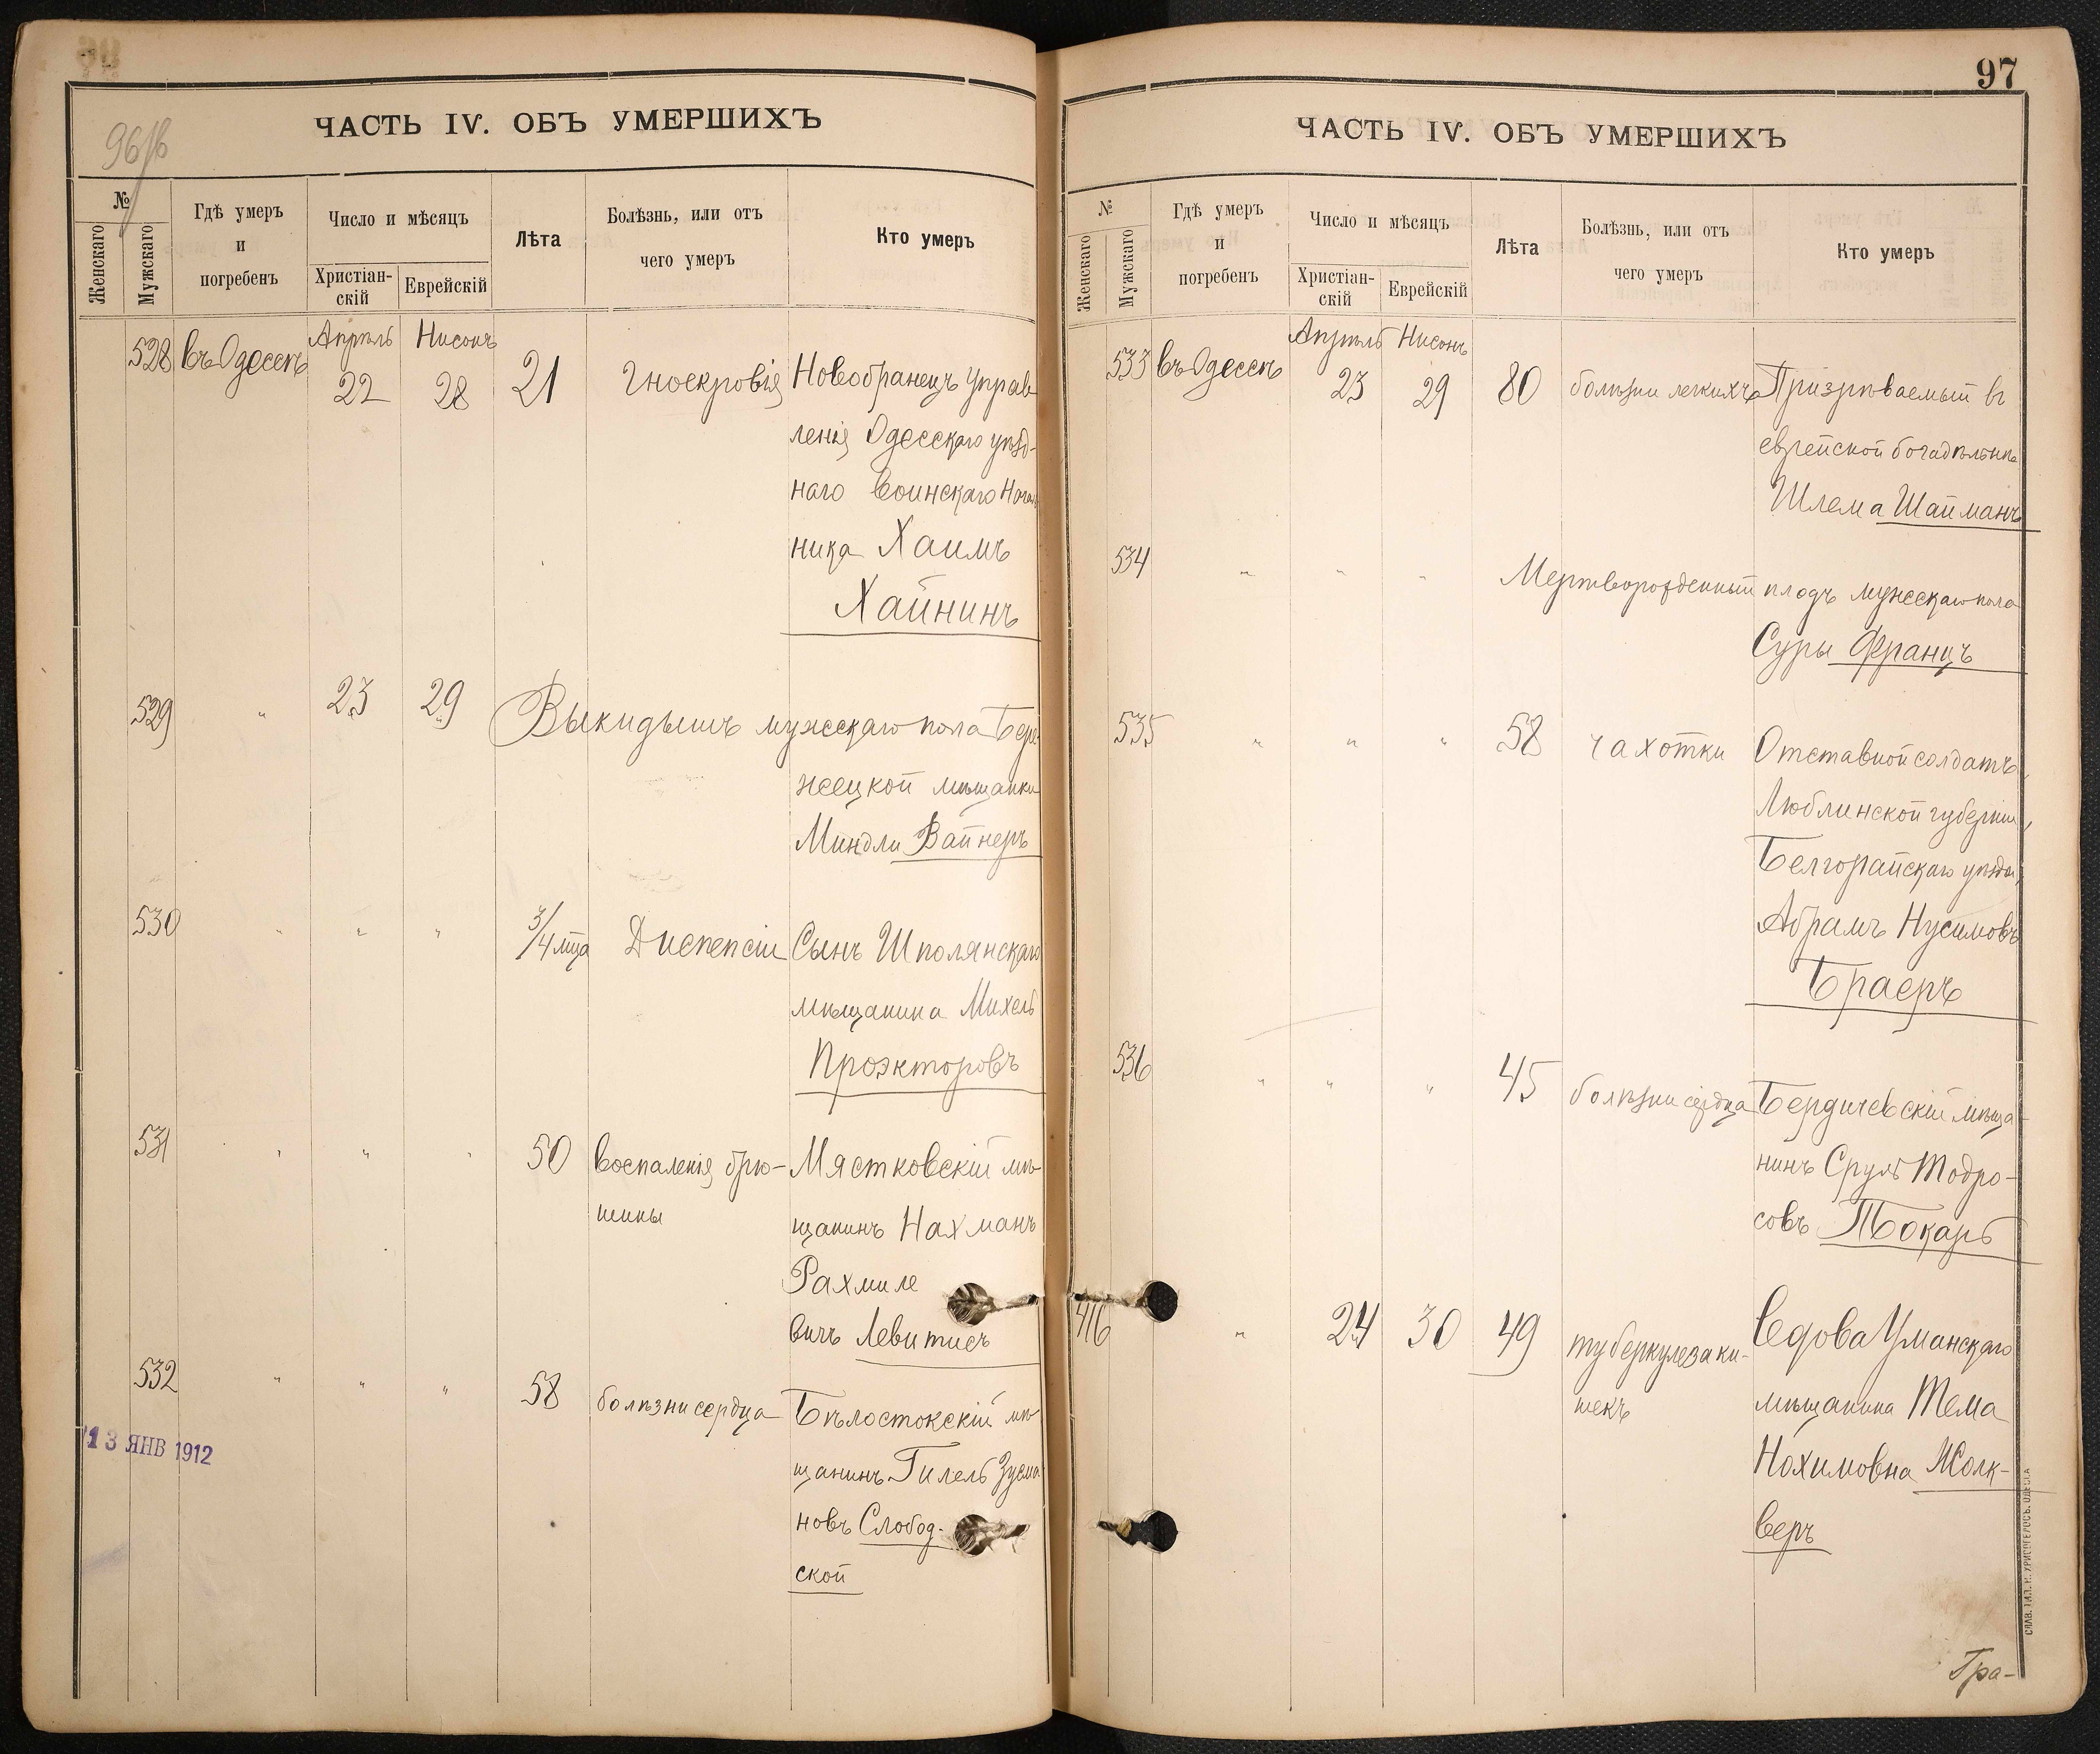 96/в
ЧАСТЬ IV. ОБЪ УМЕРШИХЪ
№
Женскаго
Мужскаго
Гдѣ умеръ
и
погребенъ
Число и мѣсяцъ
Христіан-
скій
Еврейскій
Лѣта
Болѣзнь, или отъ
чего умеръ
Кто умеръ
528 въ Одессѣ Апрѣль 22 Нисонъ 28 21 гноекровія Новобранецъ Управ
ленія Одесскаго уѣзд-
наго Воинскаго Началь
ника Хаимъ
Хайнинъ
529 " 23 29 Выкидышъ мужескаго пола Бер
жецкой мѣщанки
Миндли Вайнеръ
530 " " " 3/4 мца Диспепсіи Сынъ Шполянскаго
мѣщанина Михель
Проэкторовъ
531 " " " 50 воспаленія брю- Мястковскій мѣ
шины щанинъ Нахманъ
Рахмиле
вичъ Левитисъ
532 " " " 58 болѣзни сердца Бѣлостокскій мѣ
щанинъ Гилель Зусма
новъ Слобод-
ской
13 ЯНВ 1912
97
ЧАСТЬ IV. ОБЪ УМЕРШИХЪ
№
Женскаго
Мужскаго
Гдѣ умеръ
и
погребенъ
Число и мѣсяцъ
Христіан-
скій
Еврейскій
Лѣта
Болѣзнь, или отъ
чего умеръ
Кто умеръ
533 въ Одессѣ Апрѣль 23 Нисонъ 29 80 болѣзни легкихъ Призрѣваемый въ
еврейской богадѣльнѣ
Шлема Шайманъ
534 " " " Мертворожденный плодъ мужескаго пола
Суры Францъ
535 " " " 58 чахотки Отставной солдатъ,
Люблинской губерніи,
Белгорайскаго уѣзда,
Абрамъ Нусимовъ
Браеръ
536 " " " 45 болѣзни сердца Бердичевскій мѣща-
нинъ Сруль Тодро-
совъ Токарь
416 " 24 30 49 туберкулеза ки- Вдова Уманскаго
шекъ мѣщанина Тема
Нохимовна Жолк-
веръ
Гра-